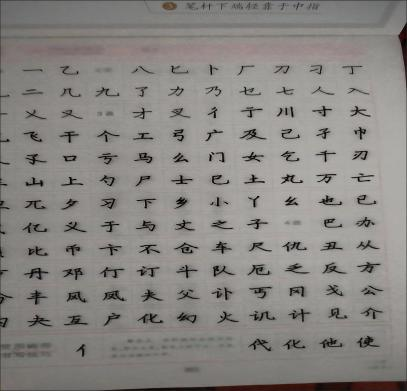 笔杆下端轻靠于中指
一 乙 八 匕 卜 厂 刀 刁 丁
二 几 九 了 力 乃 七 七 人 入
义 又 才 叉 彳 亍 川 寸 大
飞 干 个 工 弓 广 及 己 孑 巾
孓 口 亏 马 么 门 女 乞 千 刃
山 上 勺 尸 士 巳 土 丸 万 亡
兀 夕 习 下 乡 小 丫 幺 也 已
亿 义 于 与 丈 之 子 巴 办
比 币 卞 不 仓 车 尺 仇 丑 从
丹 邓 仃 订 斗 队 厄 乏 反 方
丰 风 凤 夫 父 讣 丐 冈 戈 公
夬 互 户 化 幻 火 讥 计 见 介
亻 代 化 他 使